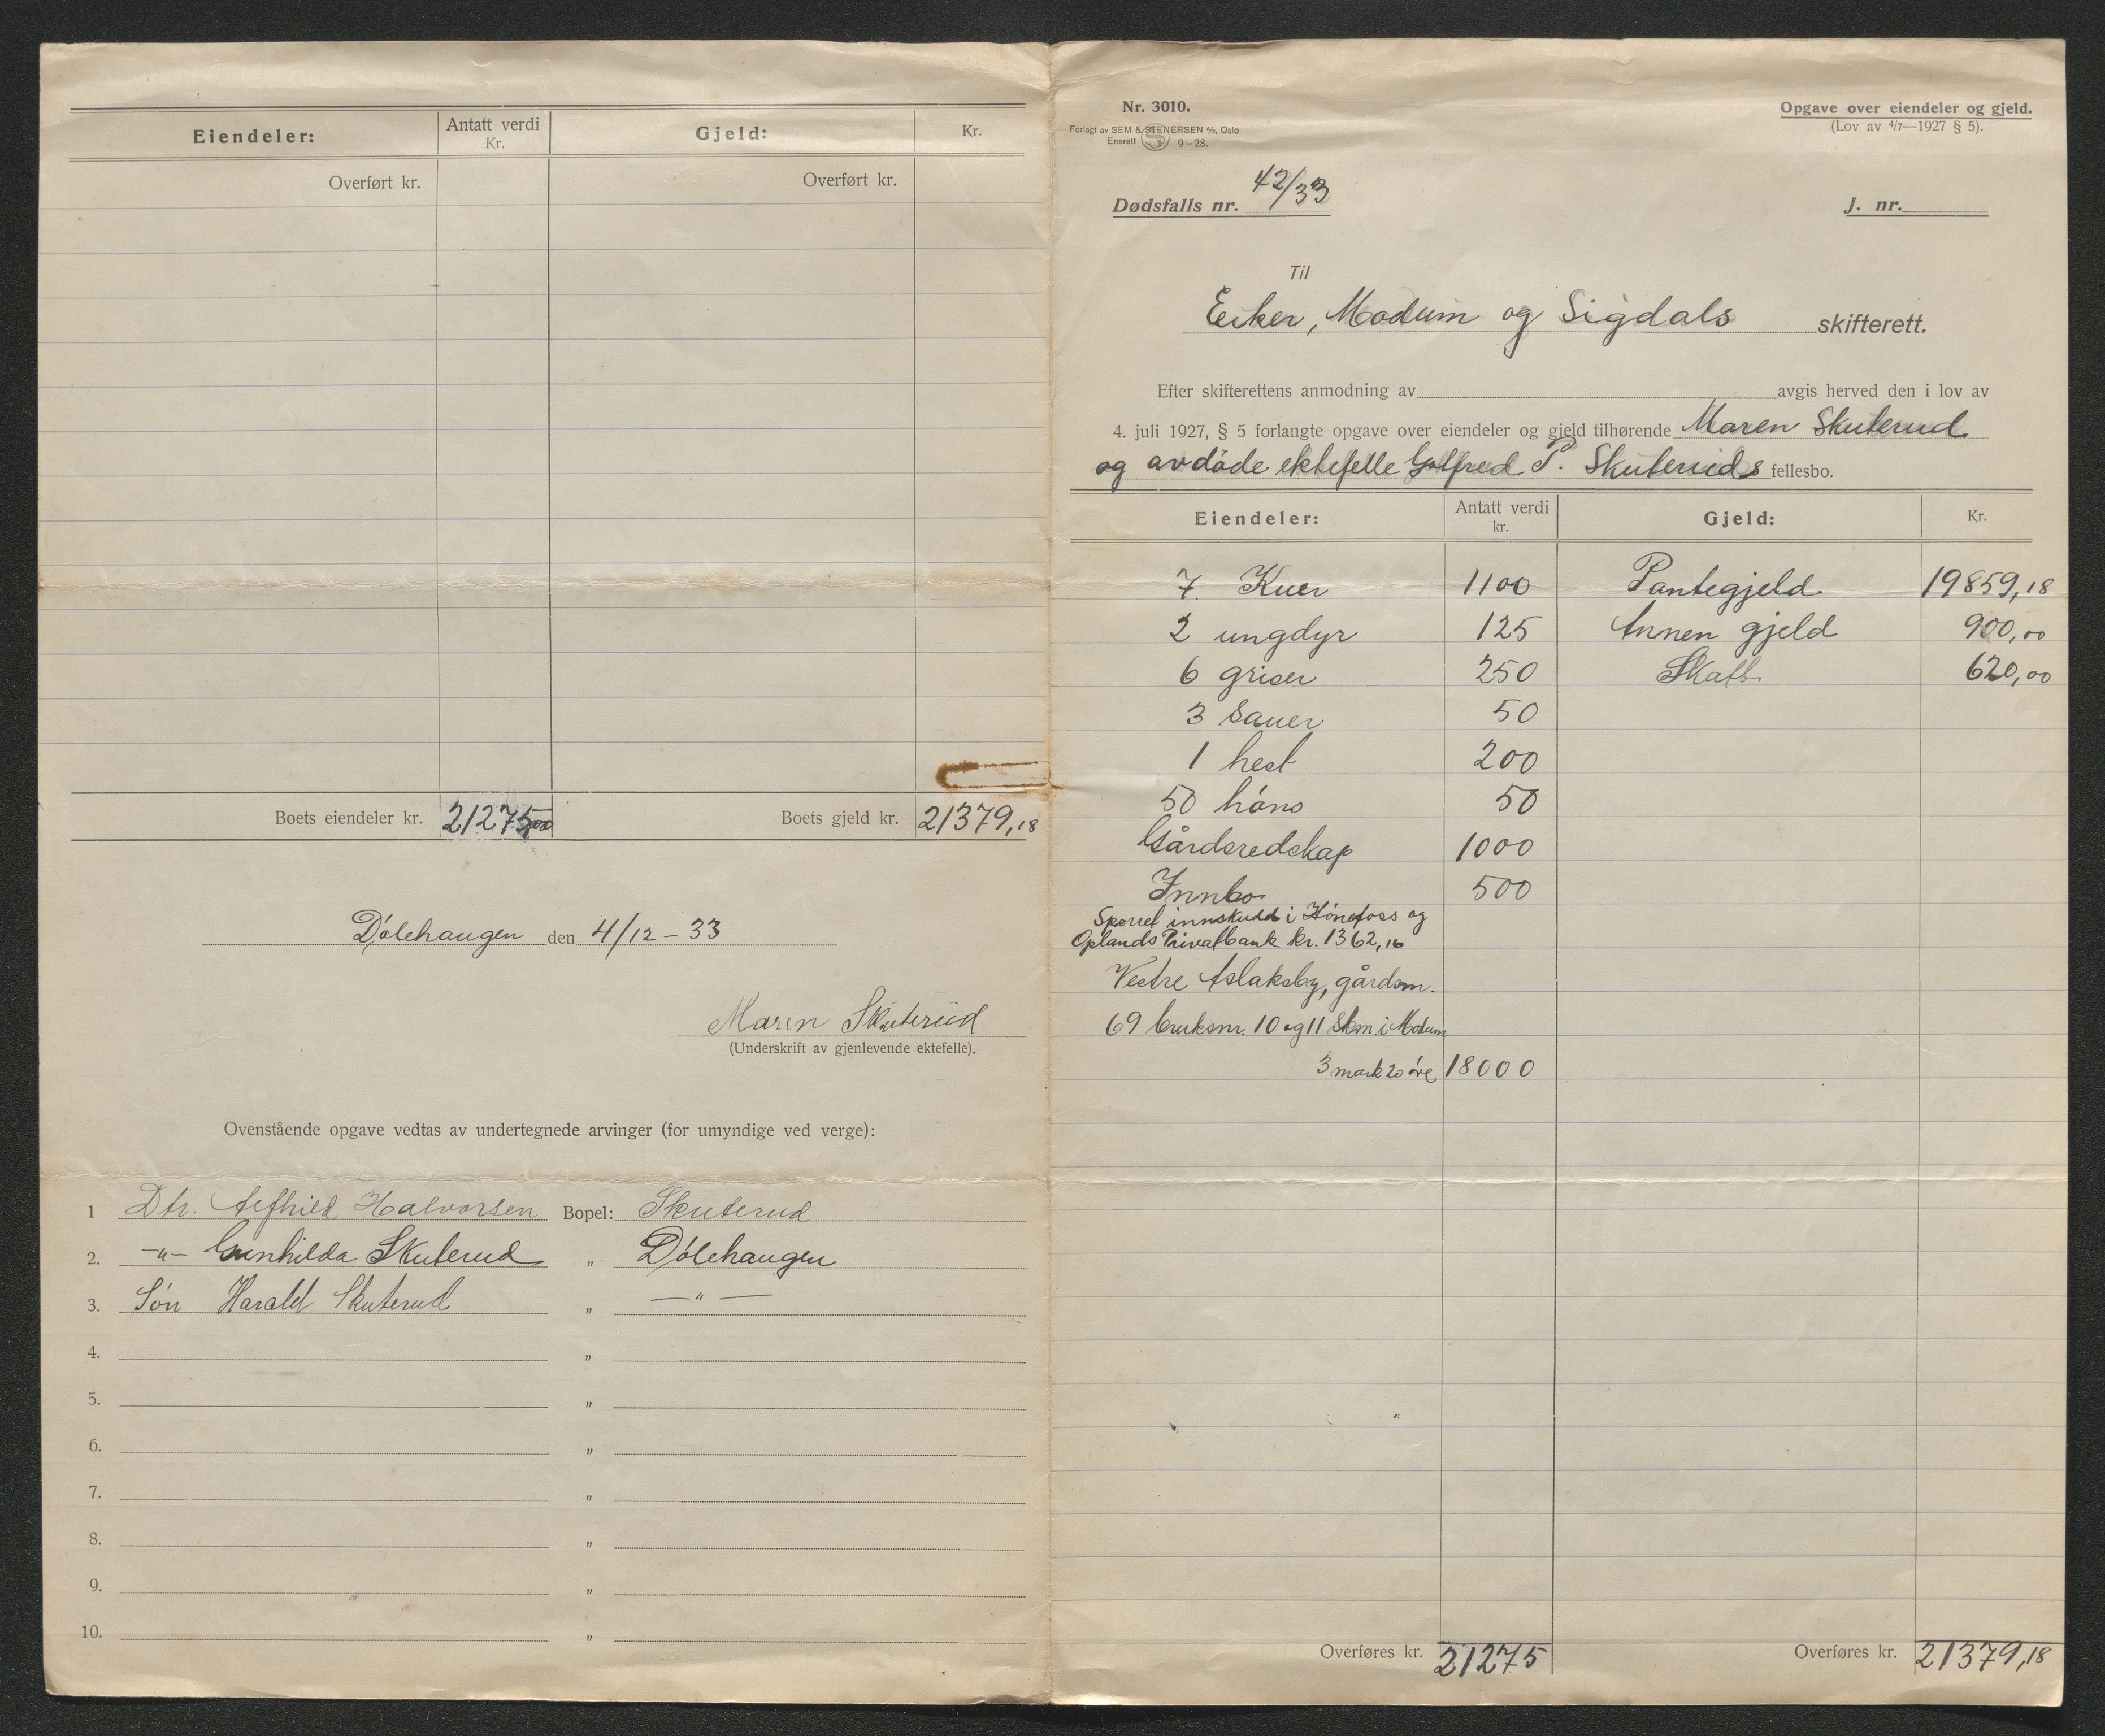 Eiendeler:
Antatt verdi
Kr.
Gjeld:
Kr.
Overført kr.
Overført kr.
Boets eiendeler kr. 21275,00
Boets gjeld kr. 21379,18
Dølehaugen den 4/12 - 33
Maren Skuterud
(Underskrift av gjenlevende ektefelle).
Ovenstående opgave vedtas av undertegnede arvinger (for umyndige ved verge):
1 Dtr. Alfhild Halvorsen Bopel: Skuterud
2. -"- Gunhilda Skuterud " Dølehaugen
3. Søn Harald Skuterud " — " —
4. "
5. "
6. "
7. "
8. "
9. "
10. "
Nr. 3010.
Forlagt av SEM & STENERSEN A/S, Oslo
Enerett S 9—28.
Opgave over eiendeler og gjeld.
(Lov av 4/7—1927 § 5).
Dødsfalls nr. 42/33
J. nr.
Til
Eiker, Modum og Sigdals skifterett.
Efter skifterettens anmodning av avgis herved den i lov av
4. juli 1927, § 5 forlangte opgave over eiendeler og gjeld tilhørende Maren Skuterud
og avdøde ektefelle Golfred P. Skuteruds fellesbo.
Eiendeler:
Antatt verdi
kr.
Gjeld:
Kr.
7 Kuer 1100 Pantegjeld 19859,18
2 ungdyr 125 Annen gjeld 900,00
6 griser 250 Skatt 620,00
3 Sauer 50
1 hest 200
50 høns 50
Gårdsredskap 1000
Innbo 500
Sperret innskudd i Hønefoss og
Oplands Privatbank kr. 1362,16
Vestre Aslaksby, gårdsm.
69 bruksnr. 10 og 11 Skm. i Modum
3 mark 20 øre 18000
Overføres kr. 21275
Overføres kr. 21379,18